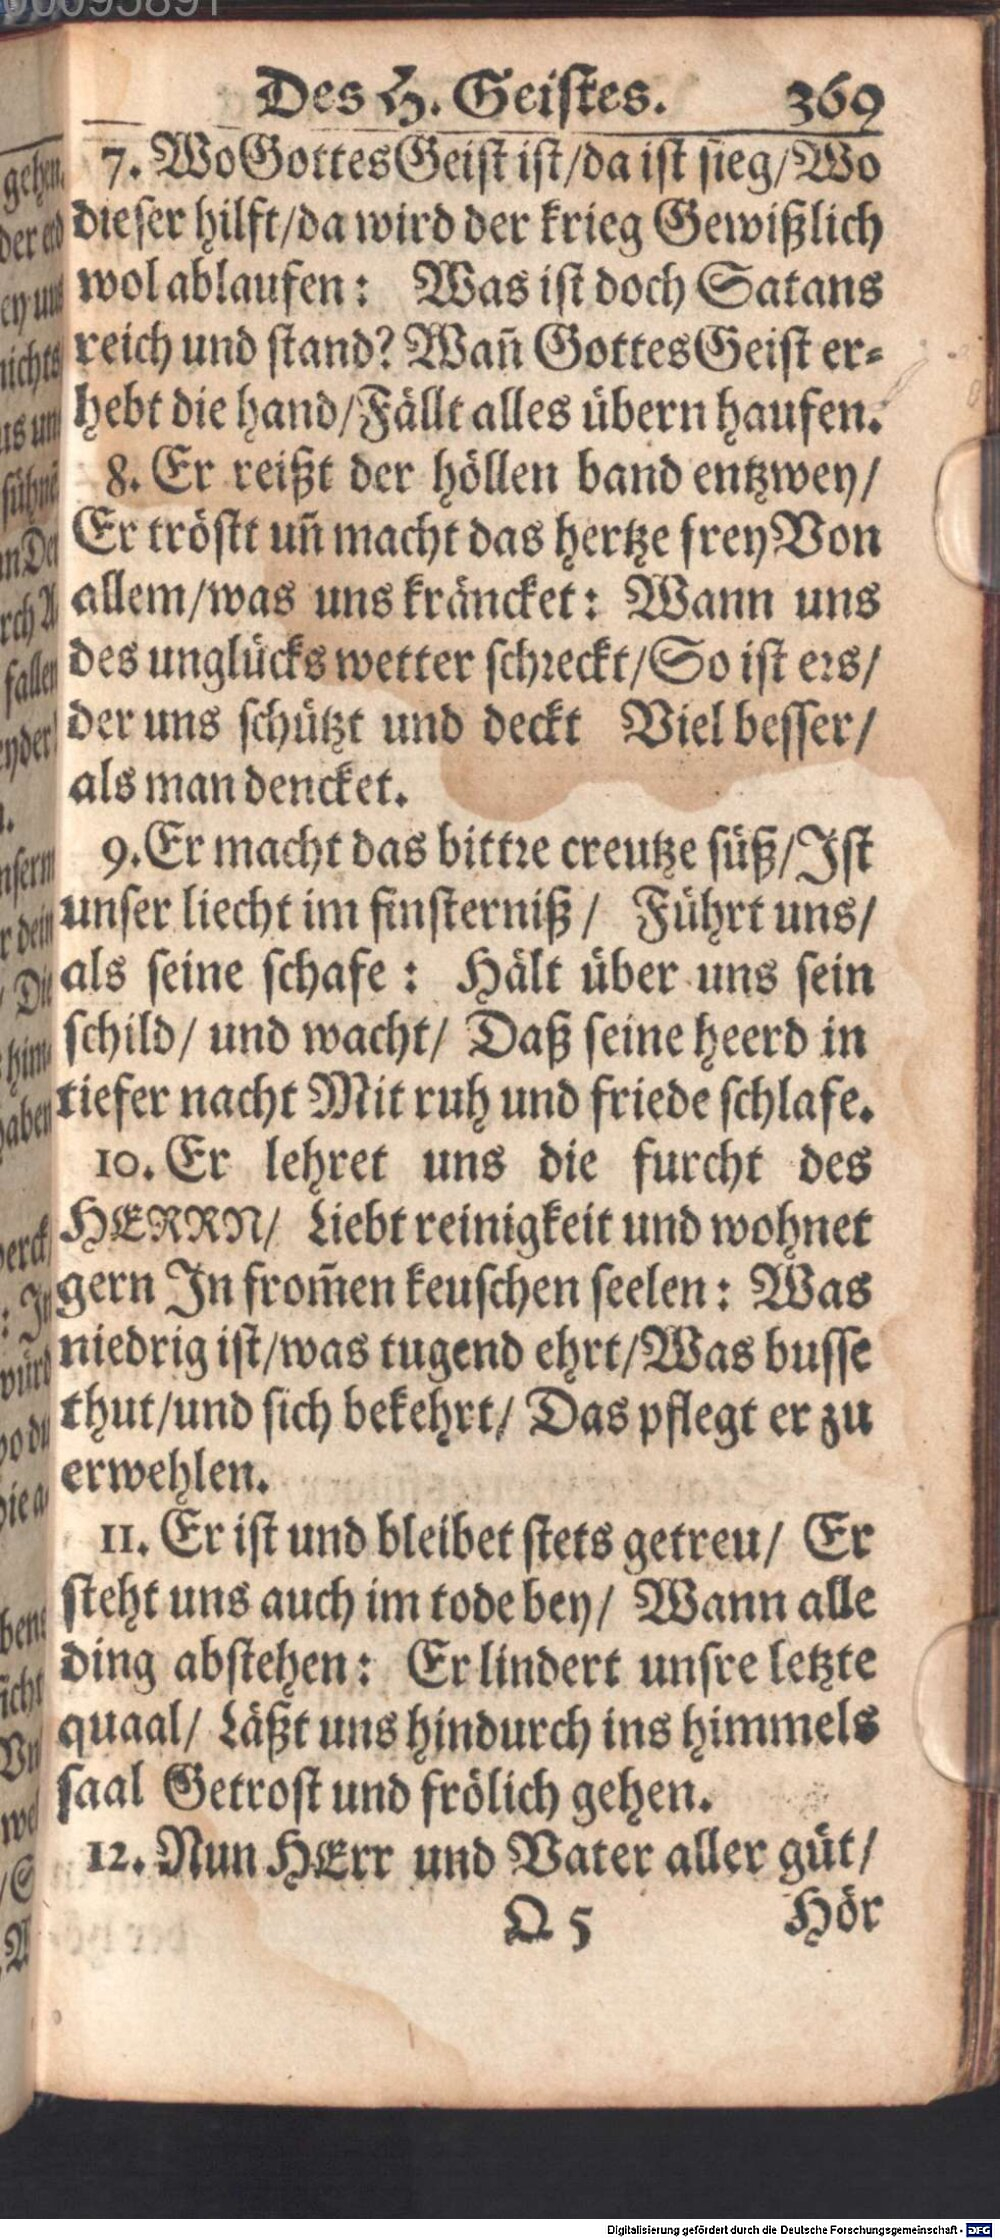 Des H. Geistes. 369
7. Wo Gottes Geist ist/da ist sieg/Wo
dieser hilft/da wird der krieg Gewißlich
wol ablaufen: Was ist doch Satans
reich und stand? Wan̄ Gottes Geist er-
hebt die hand/Fällt alles übern haufen.
8. Er reißt der höllen band entzwey/
Er tröstt un̄ macht das hertze frey Von
allem/was uns kräncket: Wann uns
des unglücks wetter schreckt/So ist ers/
der uns schützt und deckt Viel besser/
als man dencket.
9. Er macht das bittre creutze süß/Ist
unser liecht im finsterniß/ Führt uns/
als seine schafe: Hält über uns sein
schild/ und wacht/ Daß seine heerd in
tiefer nacht Mit ruh und friede schlafe.
10. Er lehret uns die furcht des
HERRN/ Liebt reinigkeit und wohnet
gern In from̄en keuschen seelen: Was
niedrig ist/was tugend ehrt/Was busse
thut/und sich bekehrt/ Das pflegt er zu
erwehlen.
11. Er ist und bleibet stets getreu/ Er
steht uns auch im tode bey/ Wann alle
ding abstehen: Er lindert unsre letzte
quaal/ Läßt uns hindurch ins himmels
saal Getrost und frölich gehen.
12. Nun HErr und Vater aller güt/
Q 5 Hör
Digitalisierung gefördert durch die Deutsche Forschungsgemeinschaft - DFG